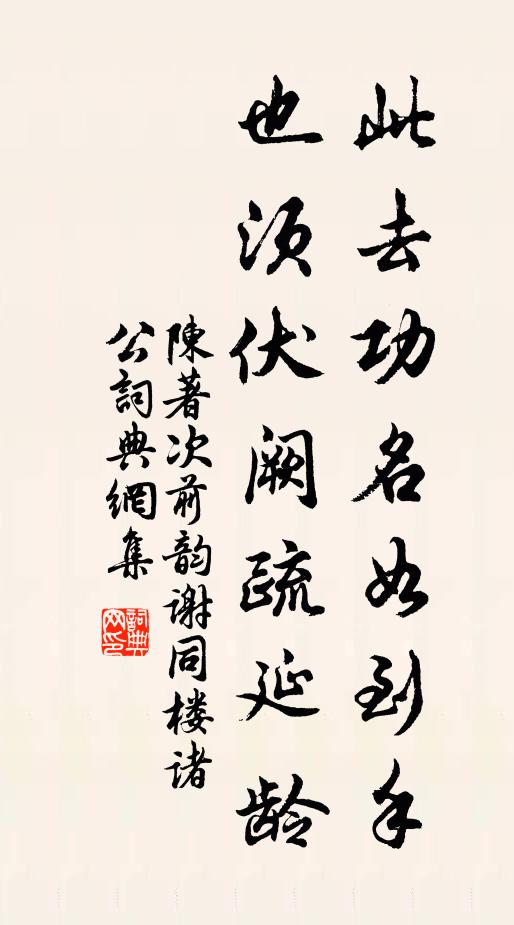 此去功名如到手
也须伏阙疏延龄
陳著次前韵谢同楼诸
公詞典網集
詞典網印